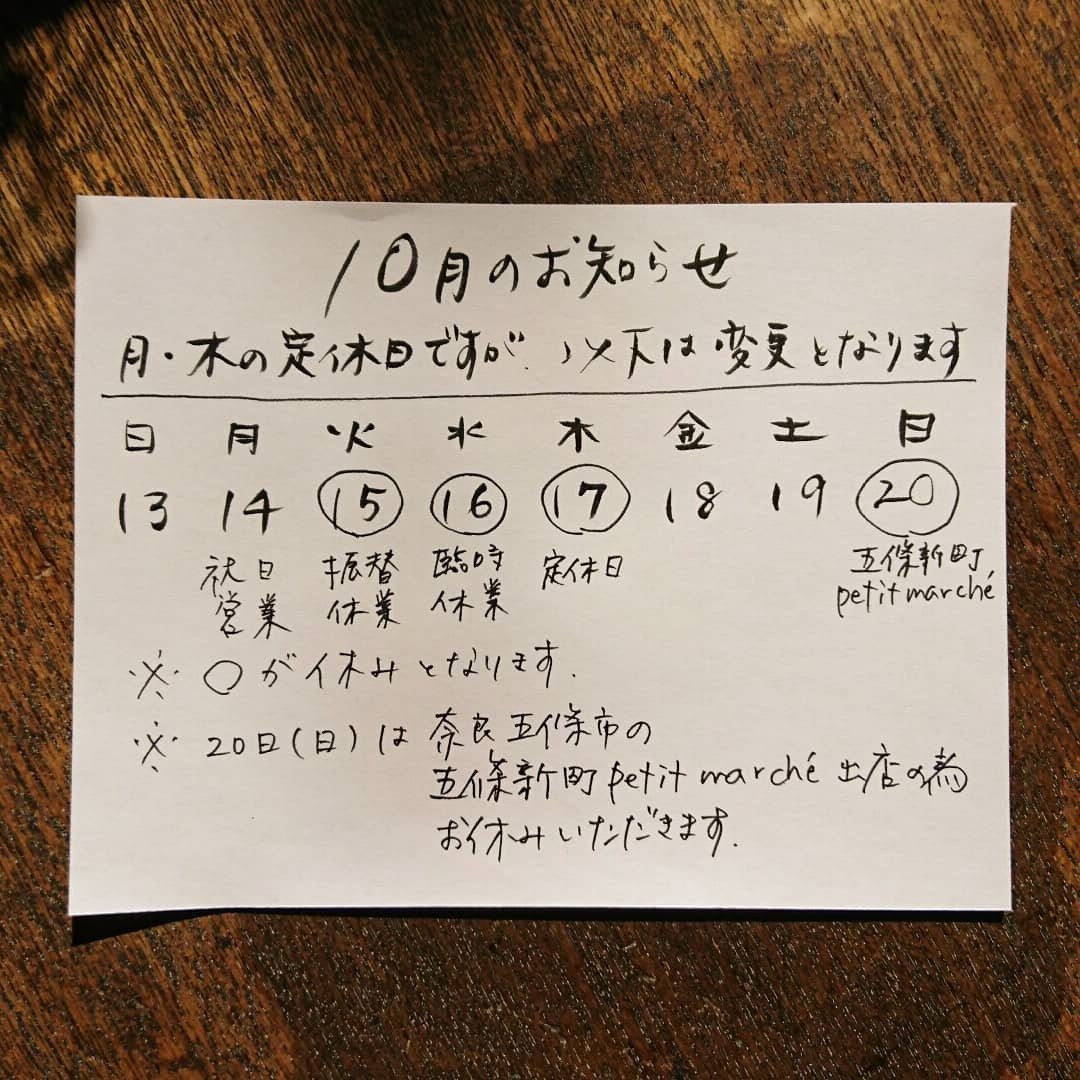 10月のお知らせ
月・木の定休日ですが、以下は変更となります
日 月 火 水 木 金 土 日
13 14 15 16 17 18 19 20
祝日営業 振替休業 臨時休業 定休日 五條新町 petit marché
※ ○が休みとなります.
※ 20日(日)は 奈良五條市の
五條新町 petit marché 出店の為
お休みいただきます.